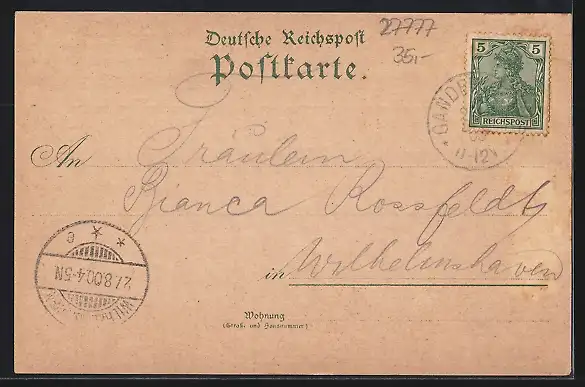 27777
35,-
Deutsche Reichspost
Postkarte.
5 5
REICHSPOST
11-12V
An Fräulein
Bianca Rossfeldt
in Wilhelmshaven
* * e
27.8.00.4-5N
Wohnung
(Straße und Hausnummer)